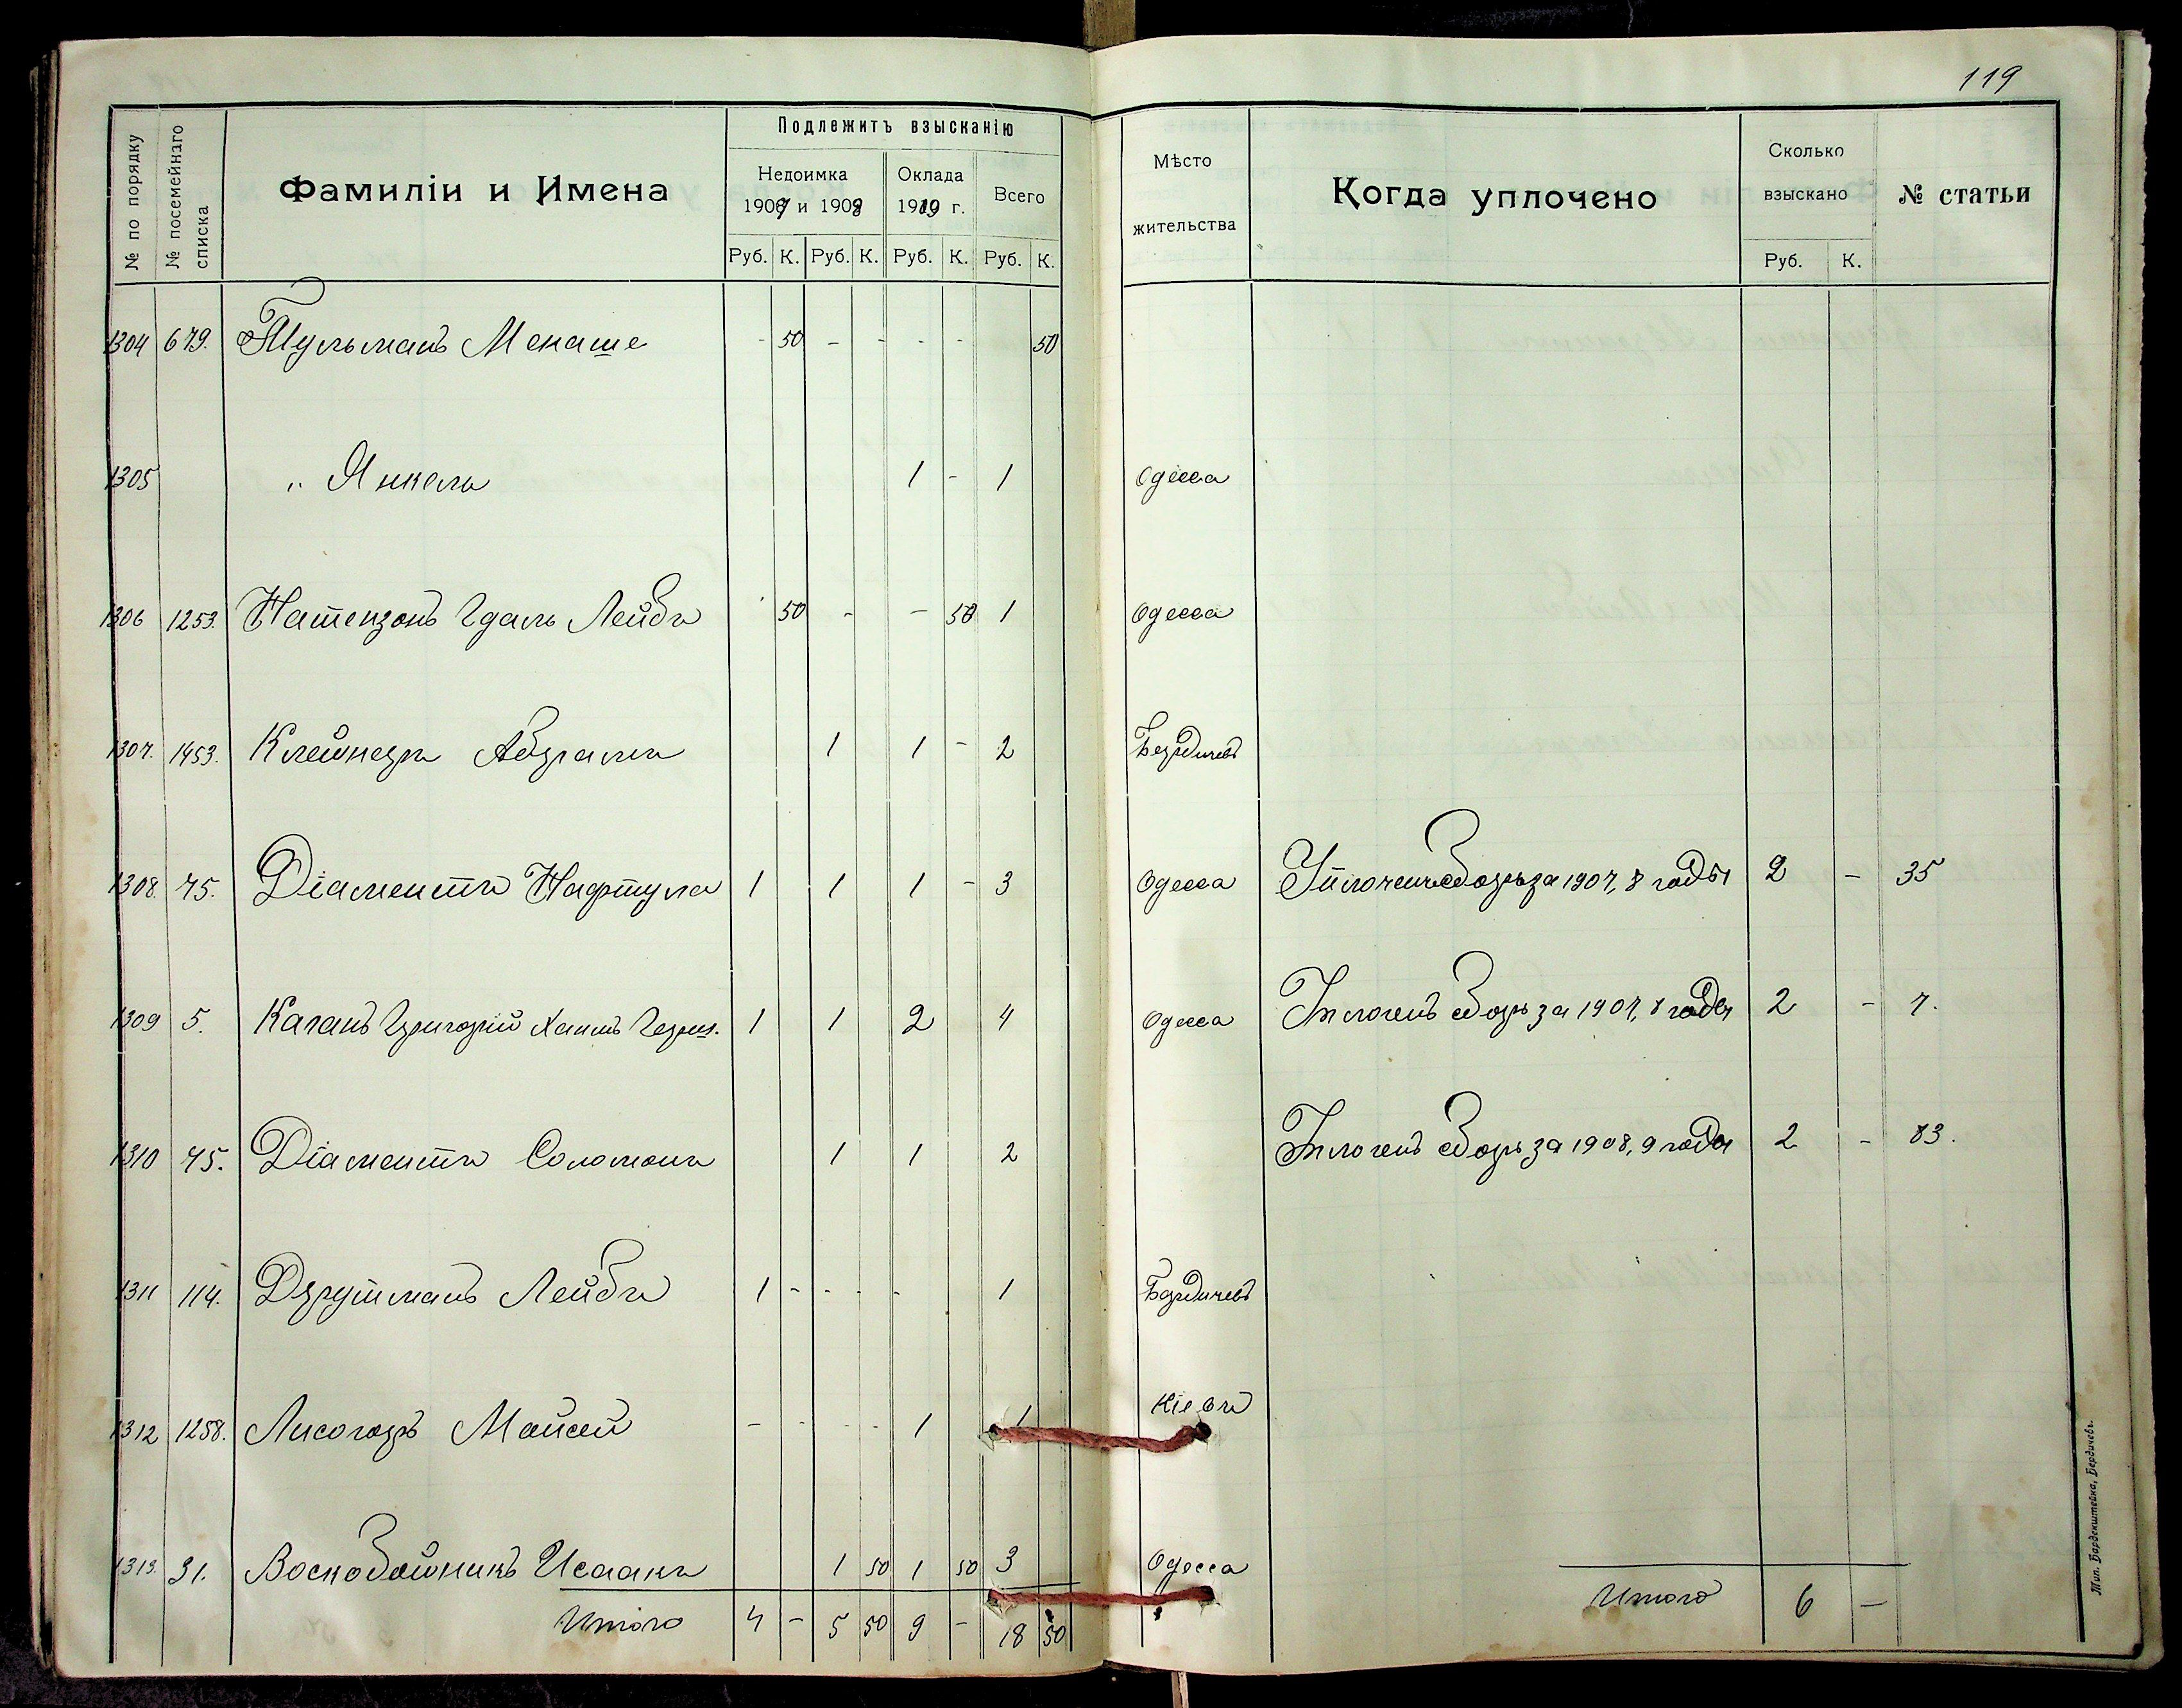 119
№ по порядку
№ посемейнаго списка
Фамиліи и Имена
Подлежитъ взысканію
Недоимка
1907 и 1908
Оклада
1909 г.
Всего
Руб. К. Руб. К. Руб. К. Руб. К.
Мѣсто
жительства
Когда уплочено
Сколько
взыскано
Руб. К.
№ статьи
1304 679. Тульманъ Менаше - 50 - - - - 50
1305 " Янкель 1 - 1 Одесса
1306 1253. Натензонъ Гдаль Лейбъ 50 - - 50 1 Одесса
1307. 1453. Клейнеръ Абрамъ 1 1 - 2 Бердичевъ
1308. 75. Діаментъ Нафтула 1 1 1 - 3 Одесса Уплоченъ сборъ за 1907, 8 годы 2 - 35
1309 5. Каганъ Григорій Хаимъ Герш. 1 1 2 4 Одесса Уплоченъ сборъ за 1907, 8 годы 2 - 7.
1310 75. Діаментъ Соломонъ 1 1 2 Уплоченъ сборъ за 1908, 9 годы 2 - 83.
1311 114. Друтманъ Лейбъ 1 - - - - 1 Бердичевъ
1312 1258. Лисогоръ Мойсей - - - - 1 1 Кіевъ
1313. 31. Воскобойникъ Исаакъ 1 50 1 50 3 Одесса
Итого 4 - 5 50 9 - 18 50
Итого 6 -
Тип. Барденштейна, Бердичевъ.